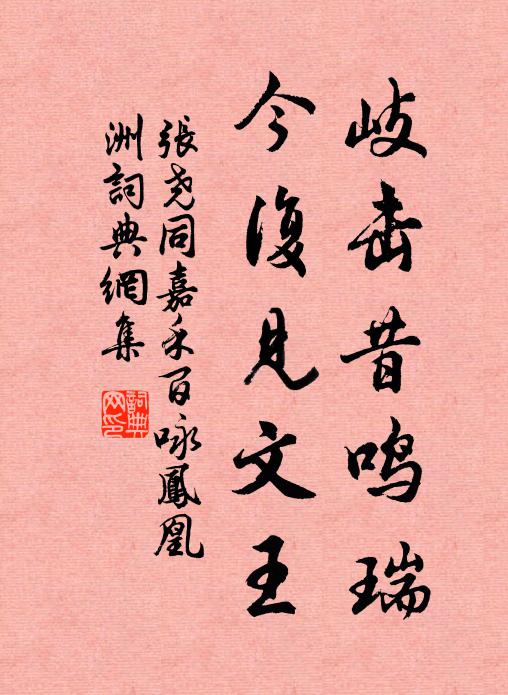 岐昔鳴瑞
今復見文王
張堯同嘉禾百咏鳳凰
洲詞典網集
詞典
网印